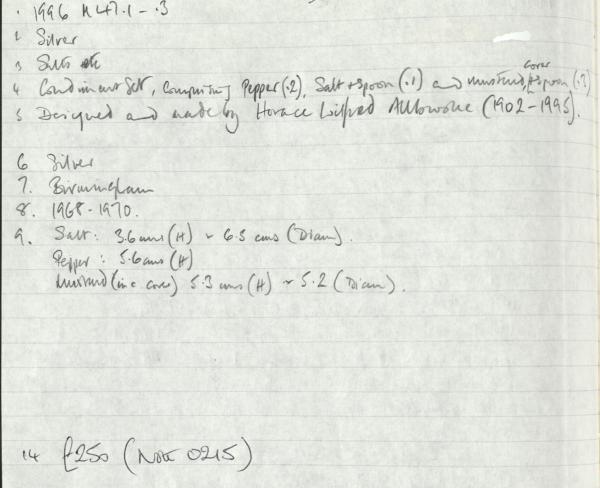 · 1996 M 47.1 - .3
2 Silver
3 Salts etc
4 Condiment Set, Comprising Pepper (.2), Salt + Spoon (.1) and mustard, cover + spoon (.3)
5 Designed and made by Horace Wilfred (1902 - 1995).
6 Silver
7. Birmingham
8. 1968-1970.
9. Salt: 3.6 cms (H) ~ 6.3 cms (Diam).
Pepper: 5.6 cms (H)
Mustard (inc cover) 5.3 cms (H) ~ 5.2 (Diam).
14 £250 (Note 0215)